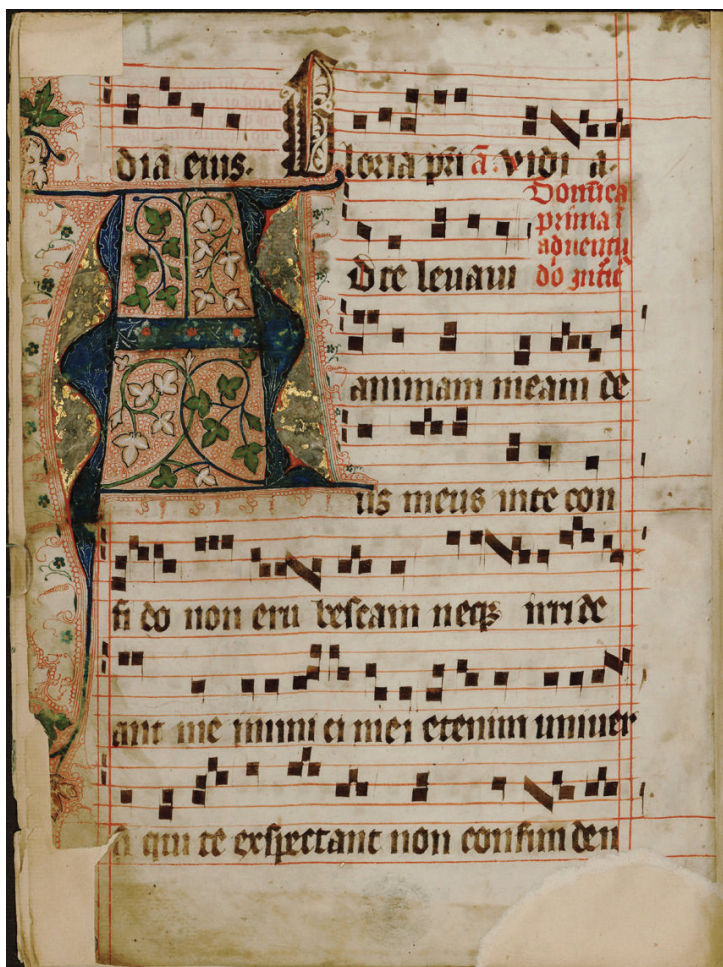 dia eius. Gloria pr̄i ā. vidi a-
Dom̄ica
prima ī
aduentu
Ad te leuaui do
animam meam de
us meus inte con
fi do non eru bescam neqꝫ irri de
ant me inimi ci mei etenim uniuer
si qui te exspectant non confun den